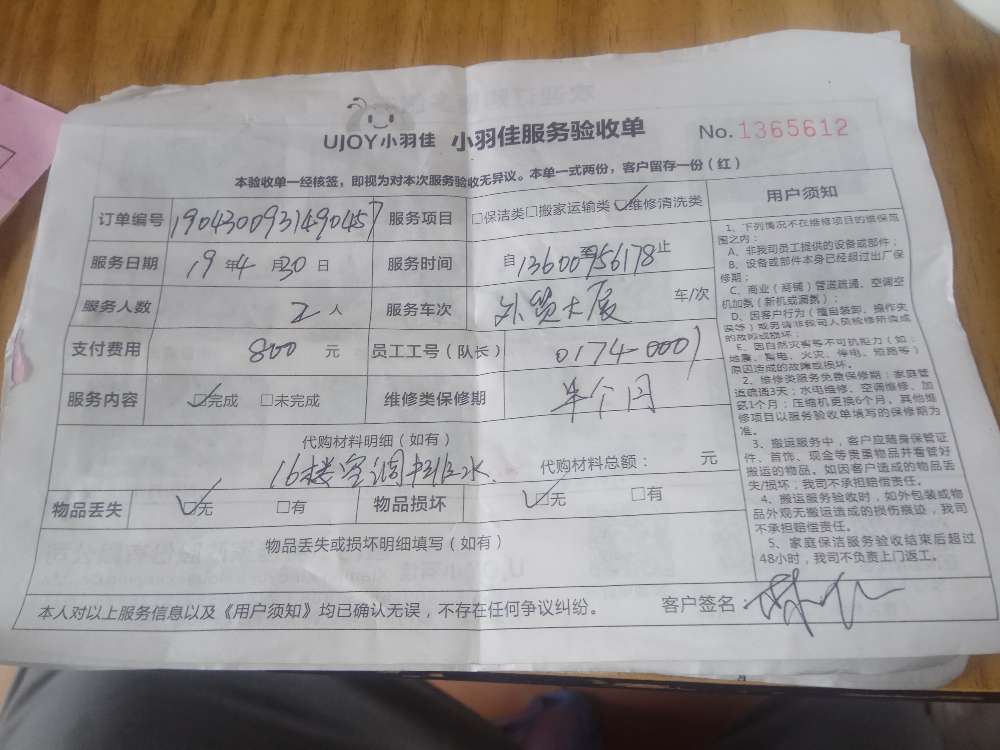 UJOY小羽佳 小羽佳服务验收单 No.1365612
本验收单一经核签，即视为对本次服务验收无异议。本单一式两份，客户留存一份（红）
订单编号 190430093149045 服务项目 □保洁类□搬家运输类☑维修清洗类
服务日期 19年4月30日 服务时间 自13600956178止
服务人数 2人 服务车次 外贸大厦 车/次
支付费用 800 元 员工工号（队长） 0174-0001
服务内容 ☑完成 □未完成 维修类保修期 半个月
代购材料明细（如有）
16楼空调 水 代购材料总额： 元
物品丢失 ☑无 □有 物品损坏 ☑无 □有
物品丢失或损坏明细填写（如有）
本人对以上服务信息以及《用户须知》均已确认无误，不存在任何争议纠纷。 客户签名：
用户须知
1、下列情况不在维修项目的维保范
围之内：
A、非我司员工提供的设备或部件；
B、设备或部件本身已经超过出厂保
修期；
C、商业（商铺）管道疏通、空调空
机加氨（新机或漏氨）；
D、因客户行为（擅自装卸、操作失
误等）或务请非我司人员检修所造成
的故障或损坏；
E、因自然灾害等不可抗拒力（如：
地震、雷电、火灾、停电、短路等）
原因造成的故障或损坏。
2、维修类服务免费保修期：家庭管
道疏通3天；水电维修、空调维修、加
氨1个月；压缩机更换6个月。其他维
修项目以服务验收单填写的保修期为
准。
3、搬运服务中，客户应随身保管证
件、首饰、现金等贵重物品并看管好
搬运的物品。如因客户造成的物品丢
失/损坏，我司不承担赔偿责任。
4、搬运服务验收时，如外包装或物
品外观无搬运造成的损伤痕迹，我司
不承担赔偿责任。
5、家庭保洁服务验收结束后超过
48小时，我司不负责上门返工。